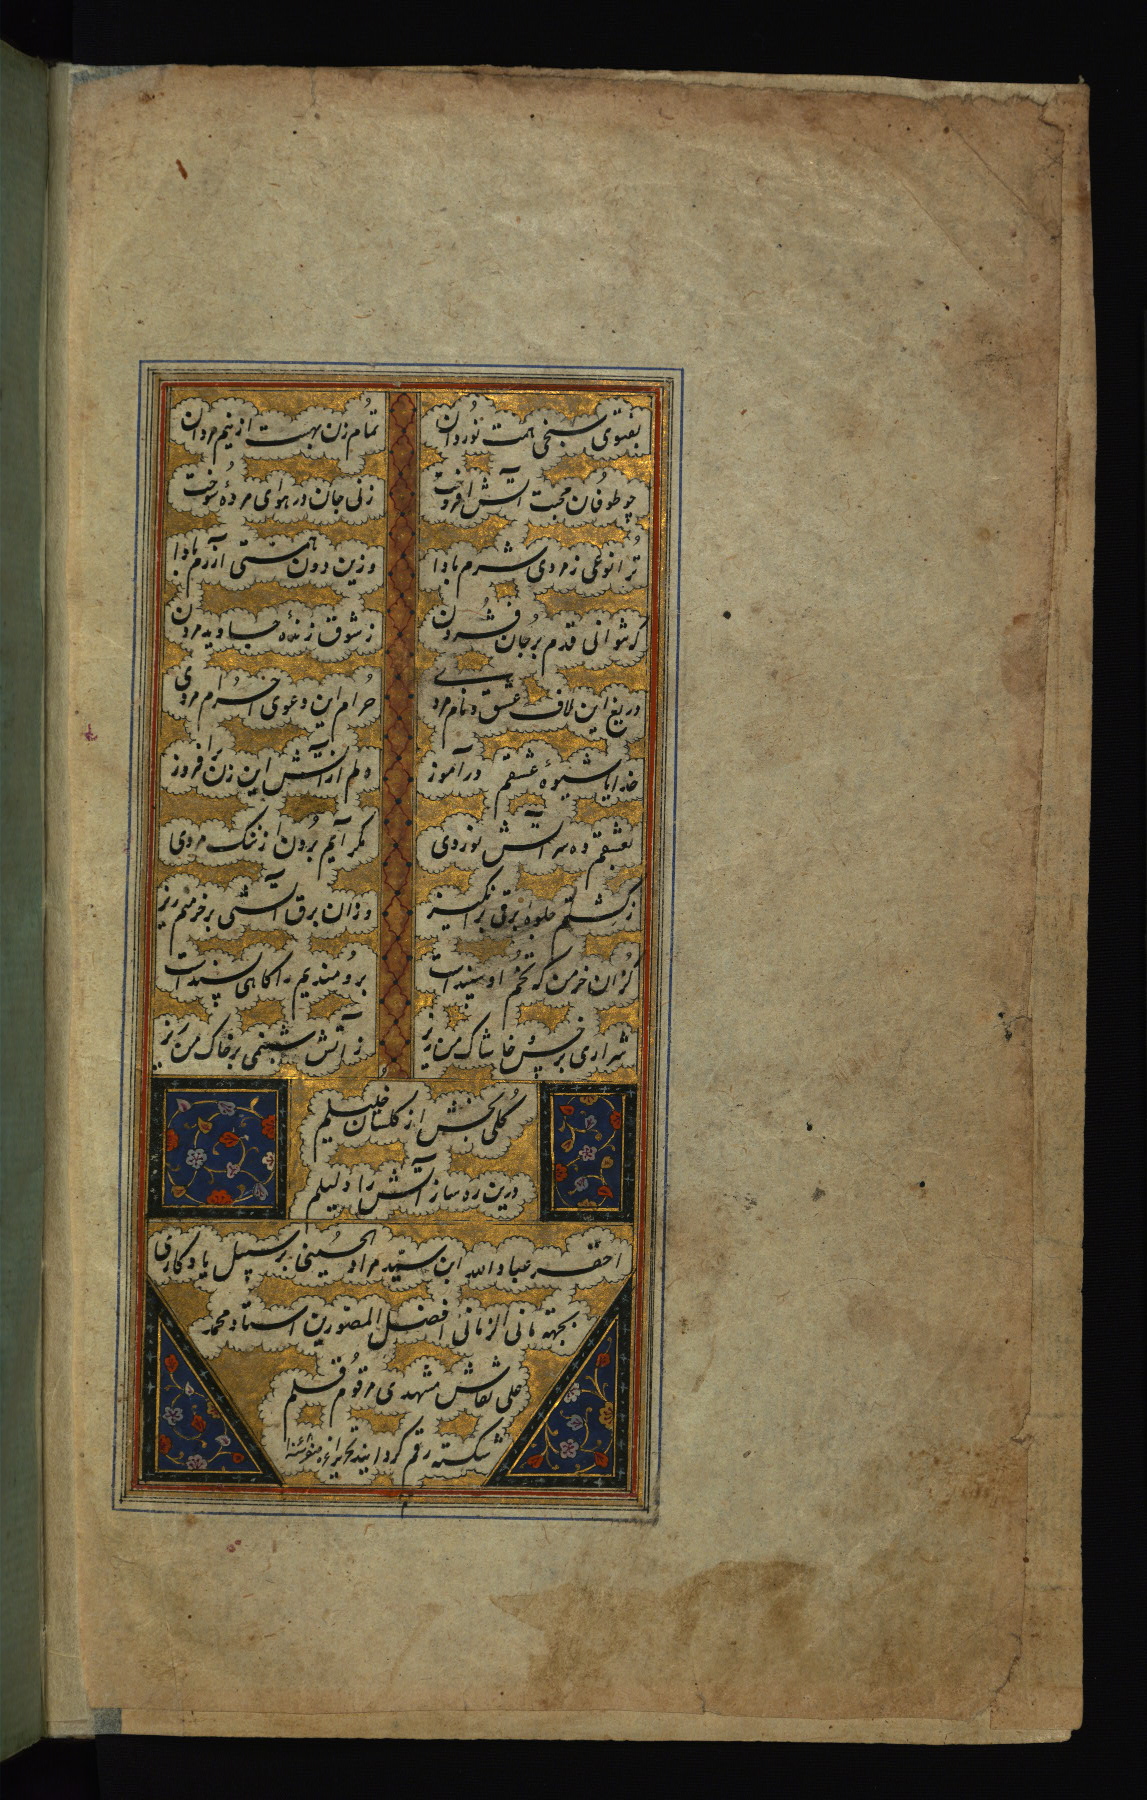 بفتوی سنجی همت نوردان تمام زن بهست از نیم مردان
چو طوفان محبت آتش افروخت زنی جان در هوای مردهٔ سوخت
ترا نوعی ز مردی شرم بادا وزین دون همتی آزرم بادا
که نتوانی قدم بر جان فشردن ز شوق زندهٔ جاوید مردن
دریغ این لاف عشق و نام مردی حرام این دعوی اخرام مردی
خدایا شیوهٔ عشقم در آموز دلم از آتش این زن برافروز
بعشقم ده سر آتش نوردی مگر آیم برون از ننگ مردی
ز کشتم جلوهٔ برقی برانگیز وزان برق آتشی بر خرمنم ریز
کزان خرمن که تخم او سپندست برومندیم را کاهی پسندست
شراری بر خس و خاشاک من ریز ز آتش شبنمی بر خاک من ریز
گلی بخش از گلستان خلیلم
درین ره ساز آتش را دلیلم
احقر عباد الله ابن سید مراد الحسینی بر سبیل یادکاری
بجهته مانی الزمانی افضل المصورین استاد محمد
علی نقاش مشهدی مرقوم قلم
شکسته رقم کردانید تحریرا